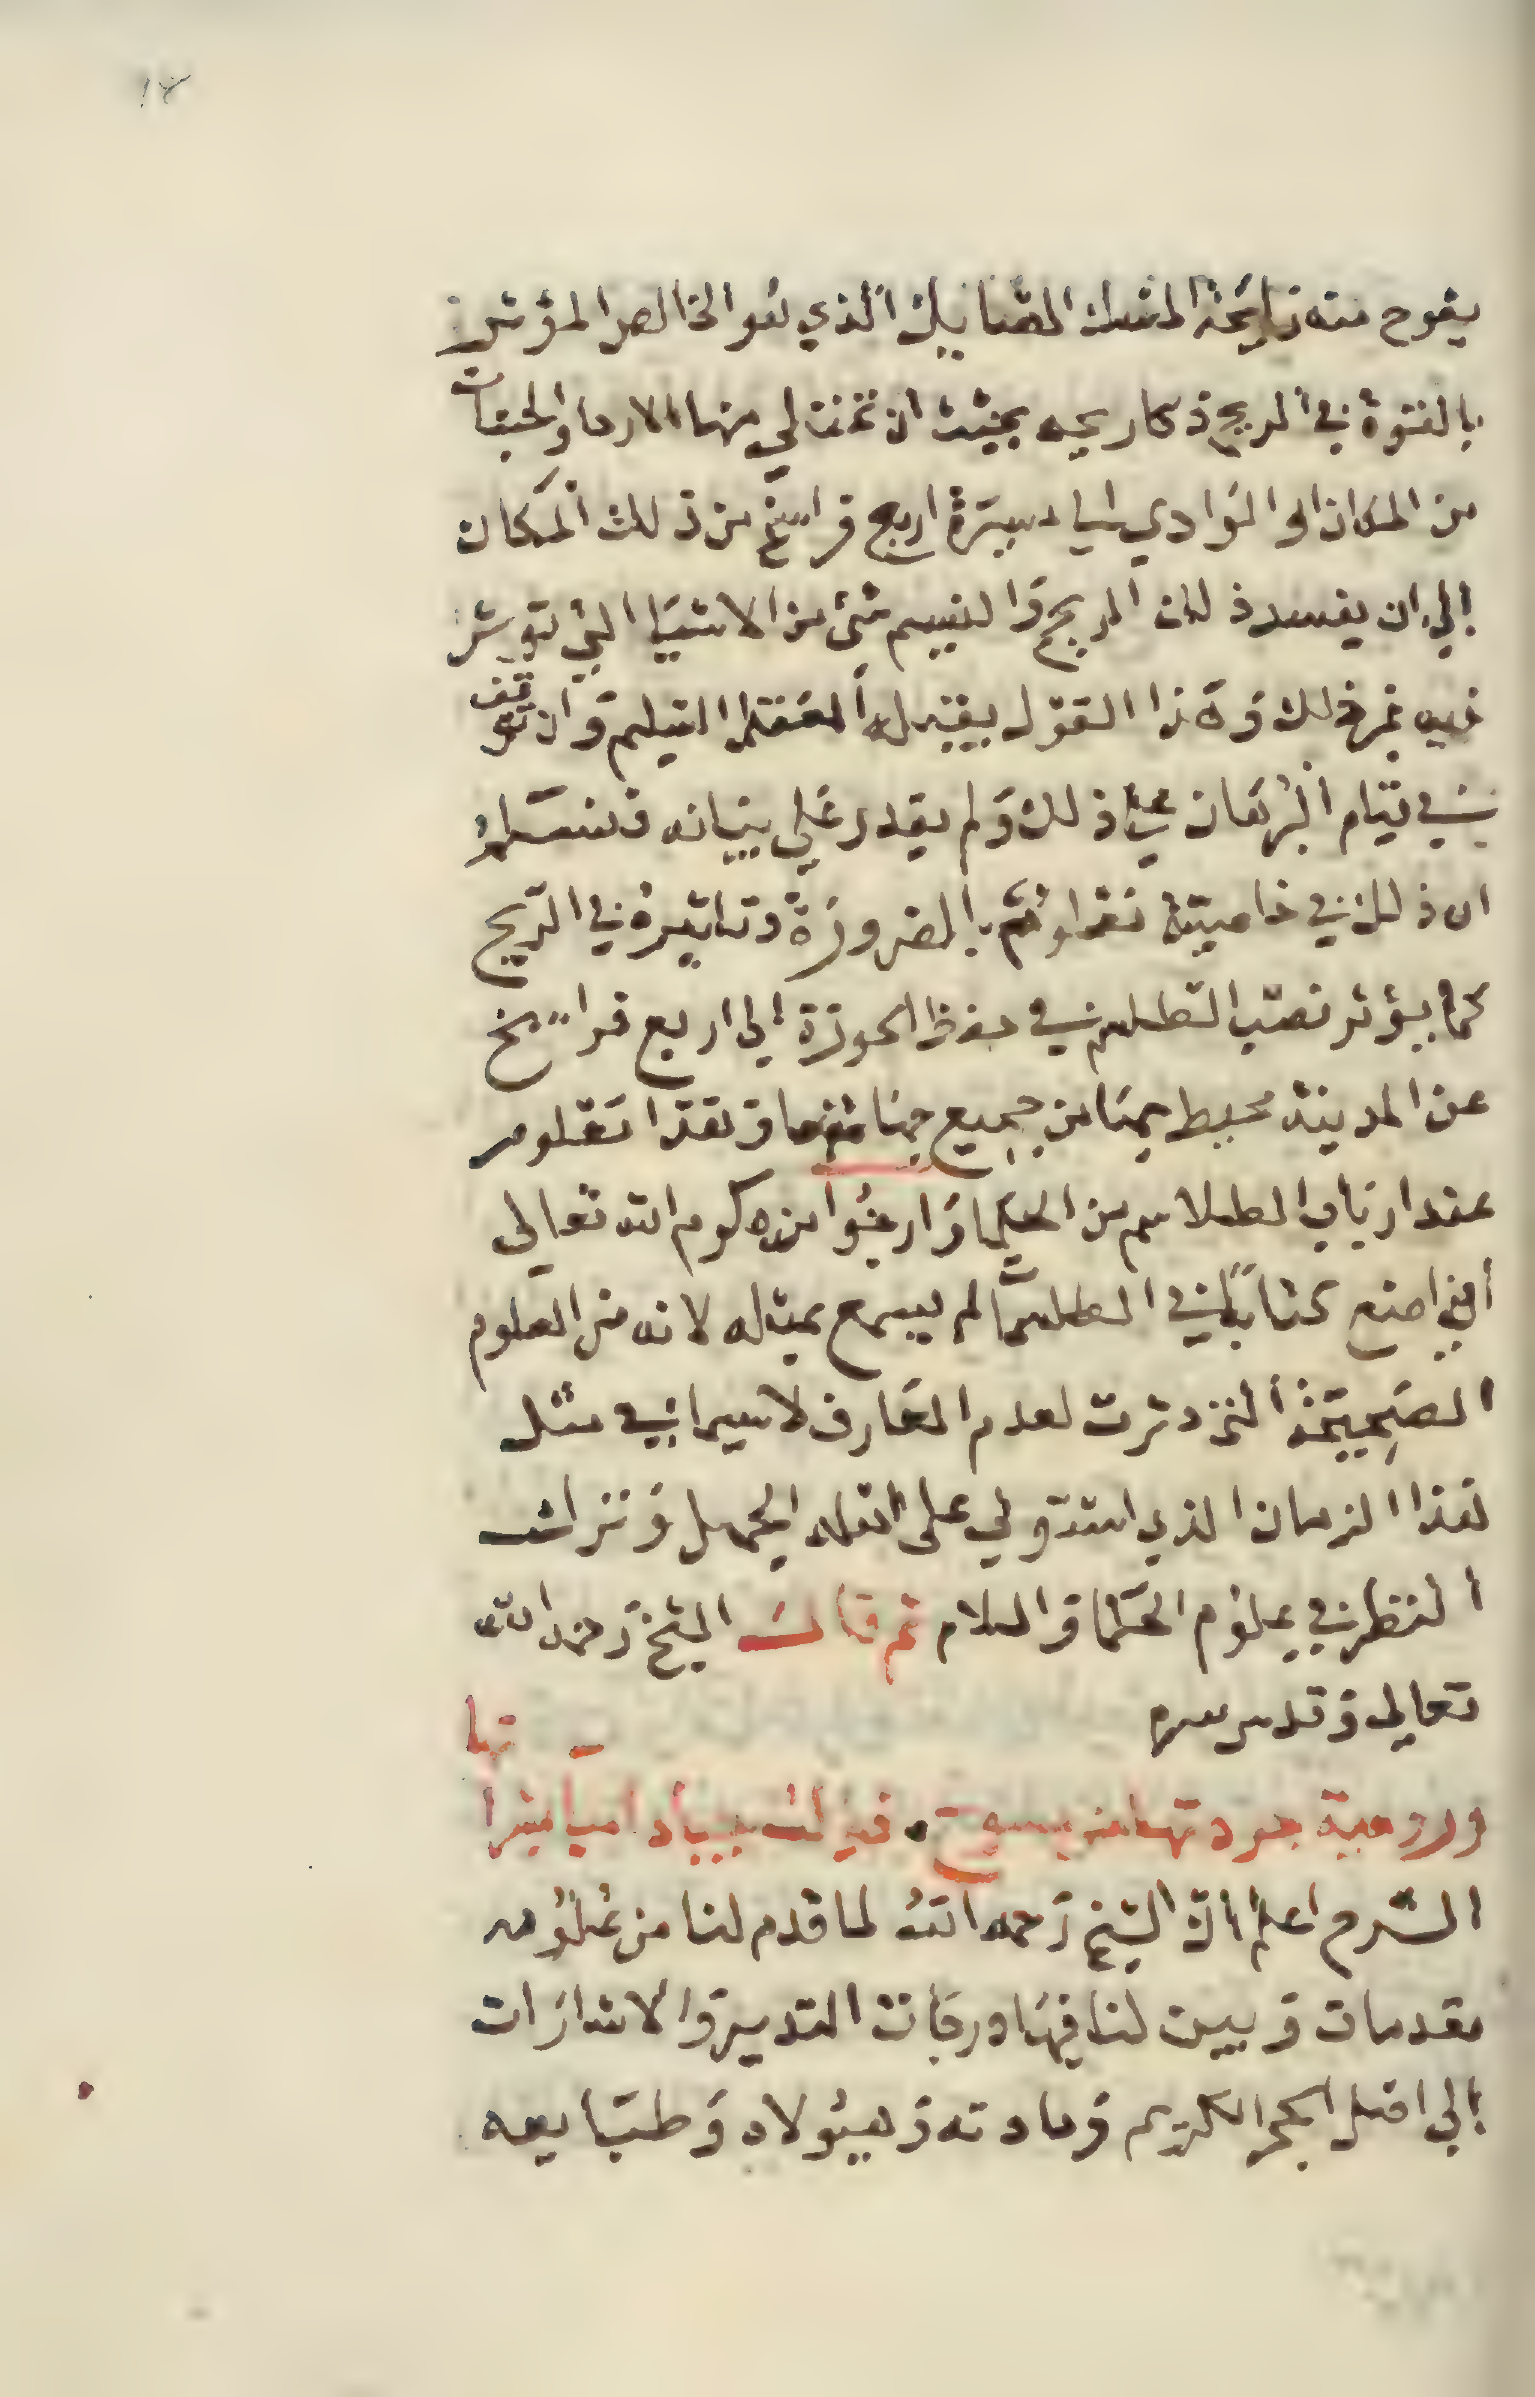 ١٢
يفوح منه رايحة المسك الصايك الذي هو الخالص المؤثر
بالقوة في الريح ذكا ريحه بحيث ان تمتلي منها الارجا والجنبات
من المكان او الوادي الي مسيرة اربع فراسخ من ذلك المكان
الي ان يفسد ذلك الريح والنسيم شي من الاشيا التي توثر
فيه غير ذلك وهذا القول يقبله العقل السليم وان توقف
في قيام البرهان علي ذلك ولم يقدر علي بيانه فنسلم
ان ذلك في خاصية بالضرورة وتاثيره في الريح
كما يؤثر نصب الطلسم في حفظ الحوزة الي اربع فراسخ
عن المدينة محيط بها من جميع جهاتها وهذا معلوم
عند ارباب الطلاسم من الحكما وارجوا من كرم الله تعالي
انني اصنع كتابا في الطلسمات لم يسمع بمثله لانه من العلوم
الصحيحة التي دثرت لعدم المعارف لاسيما في مثل
هذا الزمان الذي استولي على اهله الجهل وترك
النظر في علوم الحكما والسلام ثم قال الشيخ رحمه الله
تعالي وقدس سره
وروحية جردتها من فيزلت اتها
الشرح اعلم ان الشيخ رحمه الله لما قدم لنا من علومه
مقدمات وبين لنا فيها درجات التدبير والاشارات
الي اصل الحجر الكريم ومادته وهيولاه وطبايعه